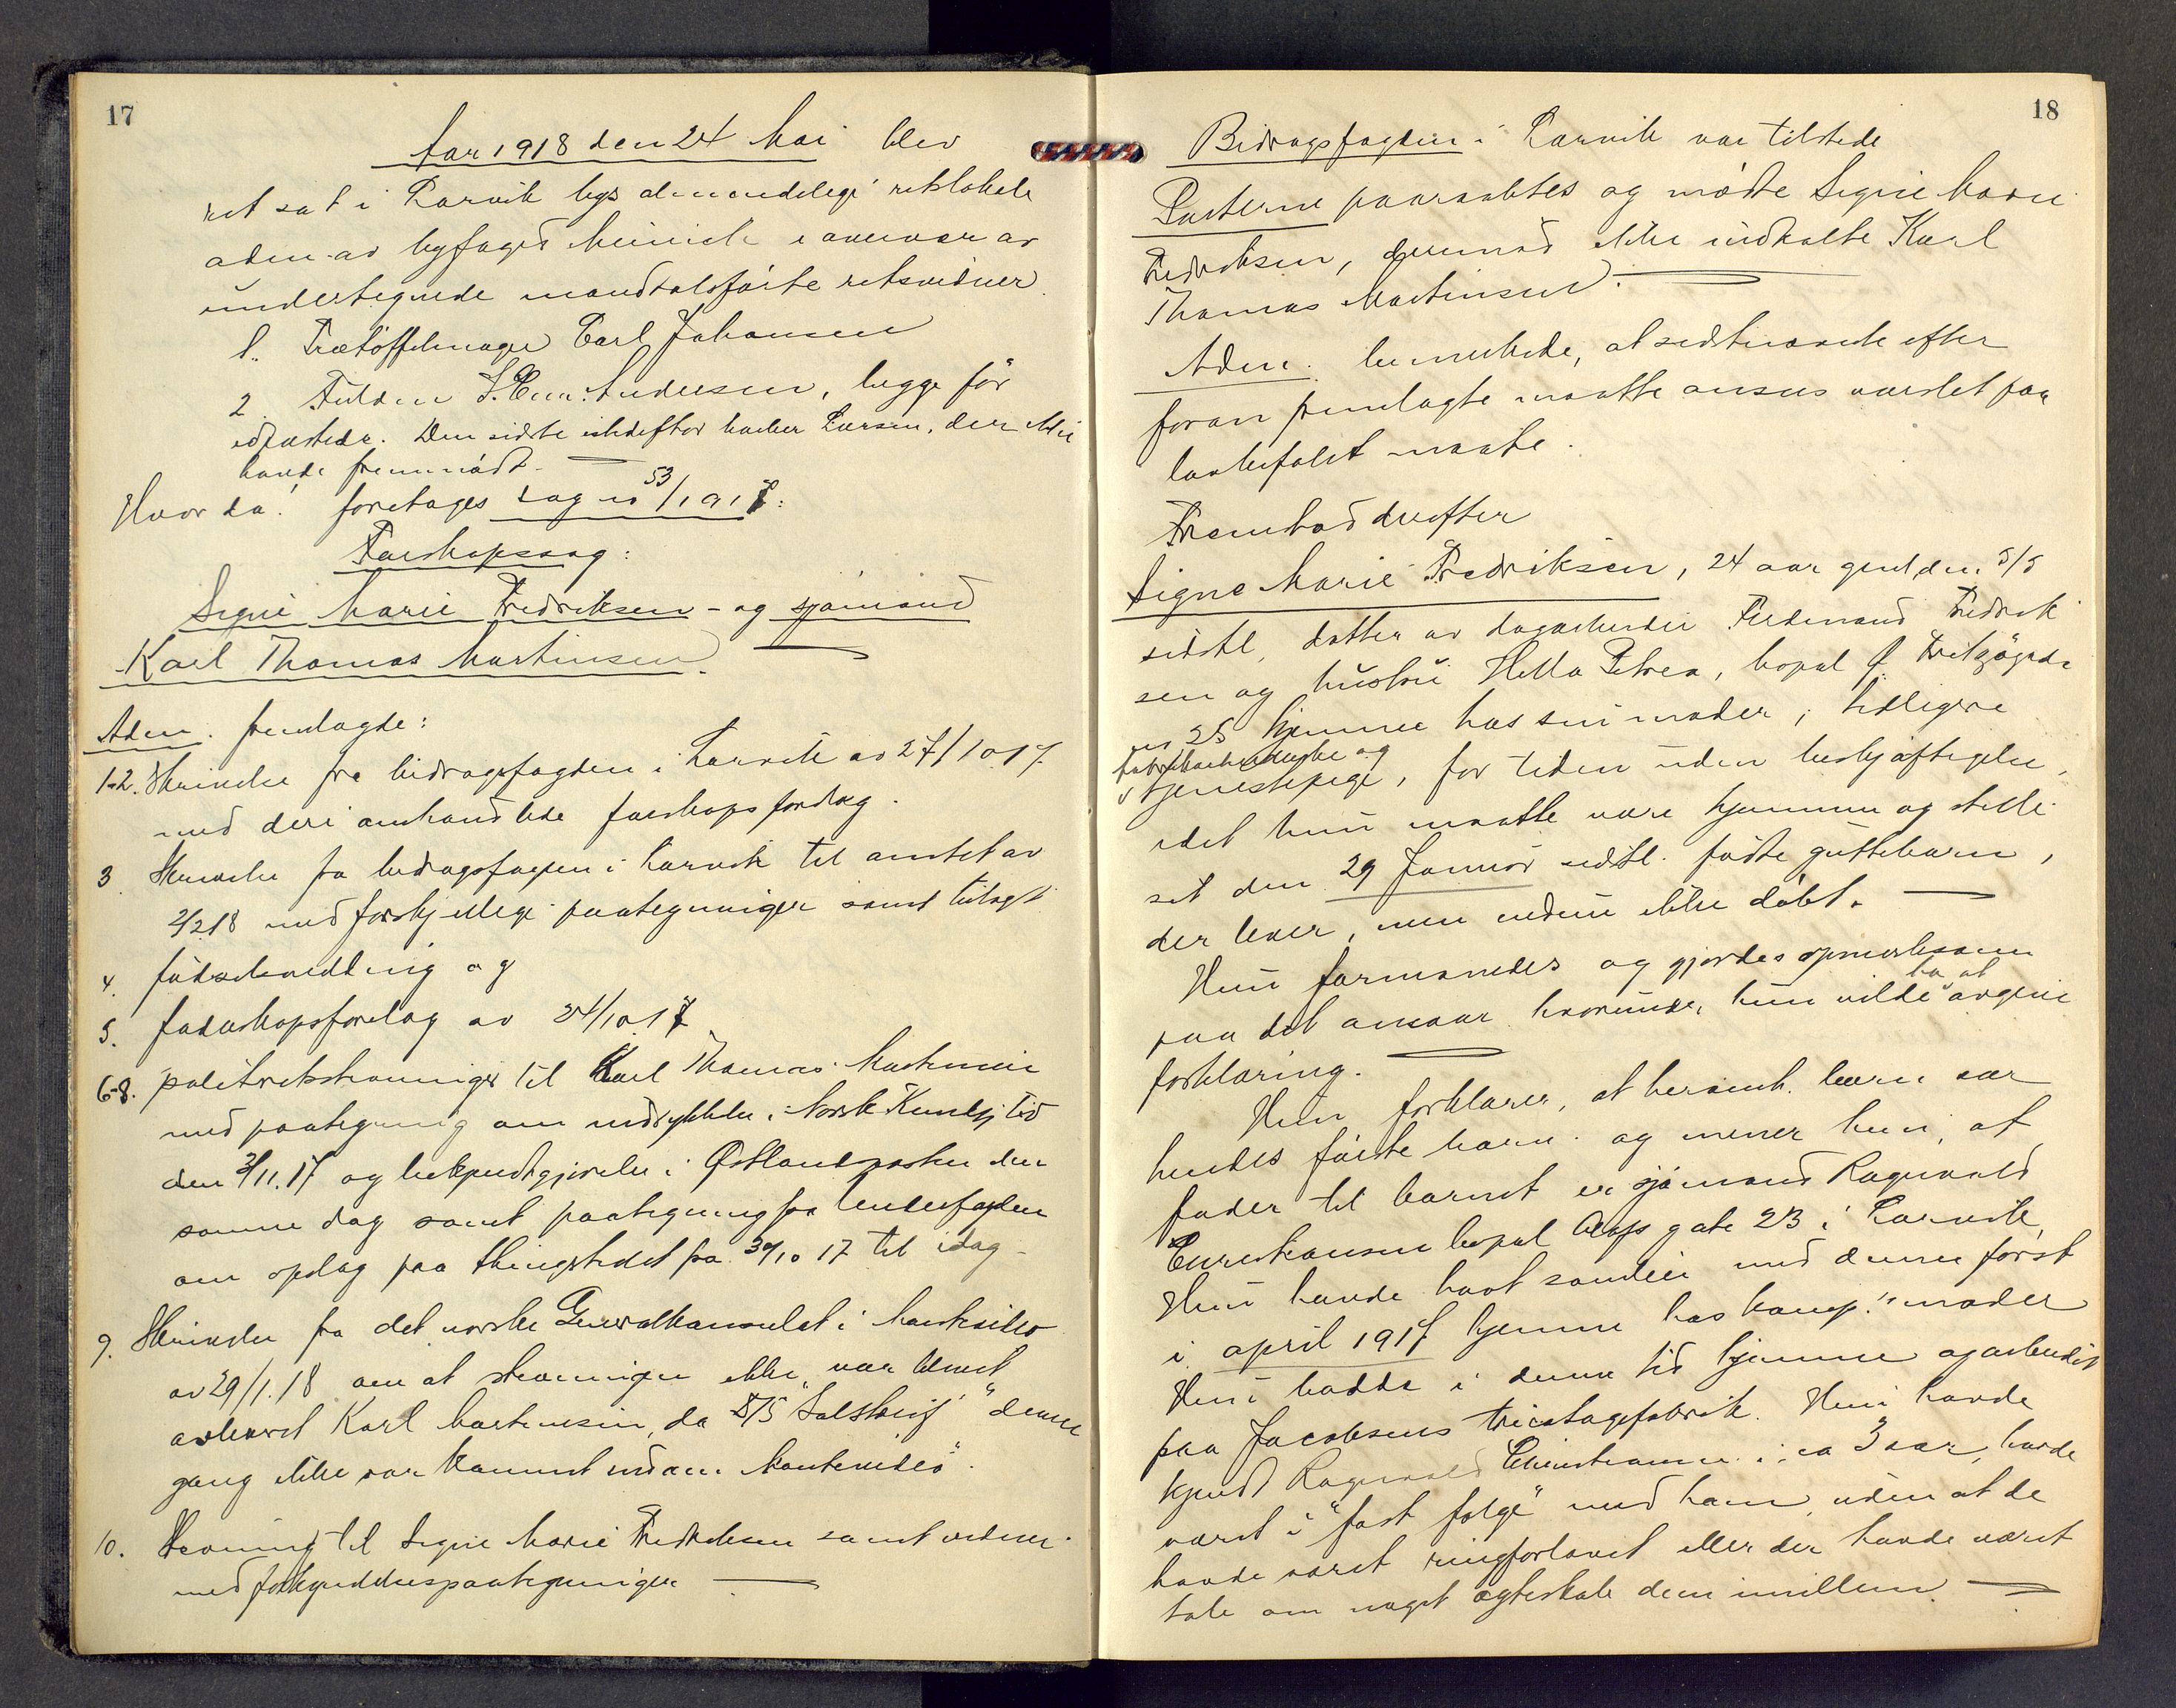 17
Aar 1918 den 24 Mai blev
ret sat i Larvik bys almindelige retslokale
adm. av byfoged Meinich i overvær av
undertegnede mandtalsførte retsvidner
1. Trætøffelmager Carl Johansen
2. Andersen, begge før
edfæstede. Den sidste istedetfor Larsen, der ikke
havde fremmødt.
Hvor da: foretages sag no 53/1917:
Farskapssag:
Signe Marie Fredriksen og sjømand
Karl Thomas Martinsen.
Adm. fremlagde:
1-2. Skrivelse fra bidragsfogden i Larvik av 27/10 17
med deri omhandlede farskapsforelæg.
3 Skrivelse fra bidragsfogden i Larvik til amtet av
2/2 18 med forskjellige paategninger samt bilagt
4. fødselsmelding og
5. faderskapsforelæg av 24/10 17
6-8. politiretsstevninger til Karl Thomas Martinsen
med paategning om indrykkelse i Norsk Kundgj. tid
den 3/11.17 og bekjendtgjørelse i Østlandsposten den
samme dag samt paategning fra lensfogden
om opslag paa thingstedet fra 30/10 17 til idag
9. Skrivelse fra det norske Generalkonsulat i Montevideo
av 29/1.18 om at stevningen ikke var blevet
avleveret Karl Martinsen, da S/S "Solstreif" denne
gang ikke var kommet indom Montevideo.
10. Stevning til Signe Marie Fredriksen samt vidner
med forkyndelsespaategninger
18
Bidragsfogden i Larvik var tilstede
Parterne paaraabtes og mødte Signe Marie
Fredriksen, derimod ikke indkaldte Karl
Thomas Martinsen.
Adm. bemerkede, at sidstnævnte efter
foran fremlagte maatte ansees varslet paa
lovbefalet maate.
Fremstod derefter
Signe Marie Fredriksen, 24 aar gml. den 5/5
sidstl, datter av dagarbeider Ferdinand Fredrik
sen og hustru Petrea, bopæl
no 25 hjemme hos sin moder; tidligere
fabrikarbeiderske og
tjenestepige, for tiden uden beskjæftigelse,
idet hun maatte være hjemme og stelle
sit den 29 Januar sidstl. fødte guttebarn,
der lever, men endnu ikke døbt.
Hun formanedes og gjordes opmerksom
paa det ansvar hvorunder hun vilde ha at avgive
forklaring.
Hun forklarer, at heromh. barn var
hendes første barn og mener hun, at
fader til barnet er sjømand Ragnvald
Christiansen bopæl gate 23 i Larvik.
Hun havde havt samleie med denne først
i april 1917 hjemme hos komp.s moder
Hun bodde i denne tid hjemme og arbeidet
paa Jacobsens tricotagefabrik. Hun havde
kjendt Ragnvald Christiansen i ca 3 aar, havde
været i "fast følge" med ham, uden at de
havde været ringforlovet eller der havde været
tale om noget ægteskab dem imellem.